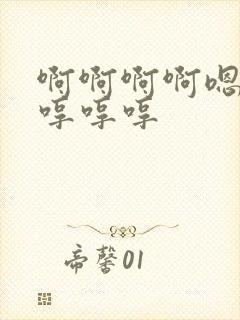 啊啊啊啊嗯
哼哼哼
帝馨01